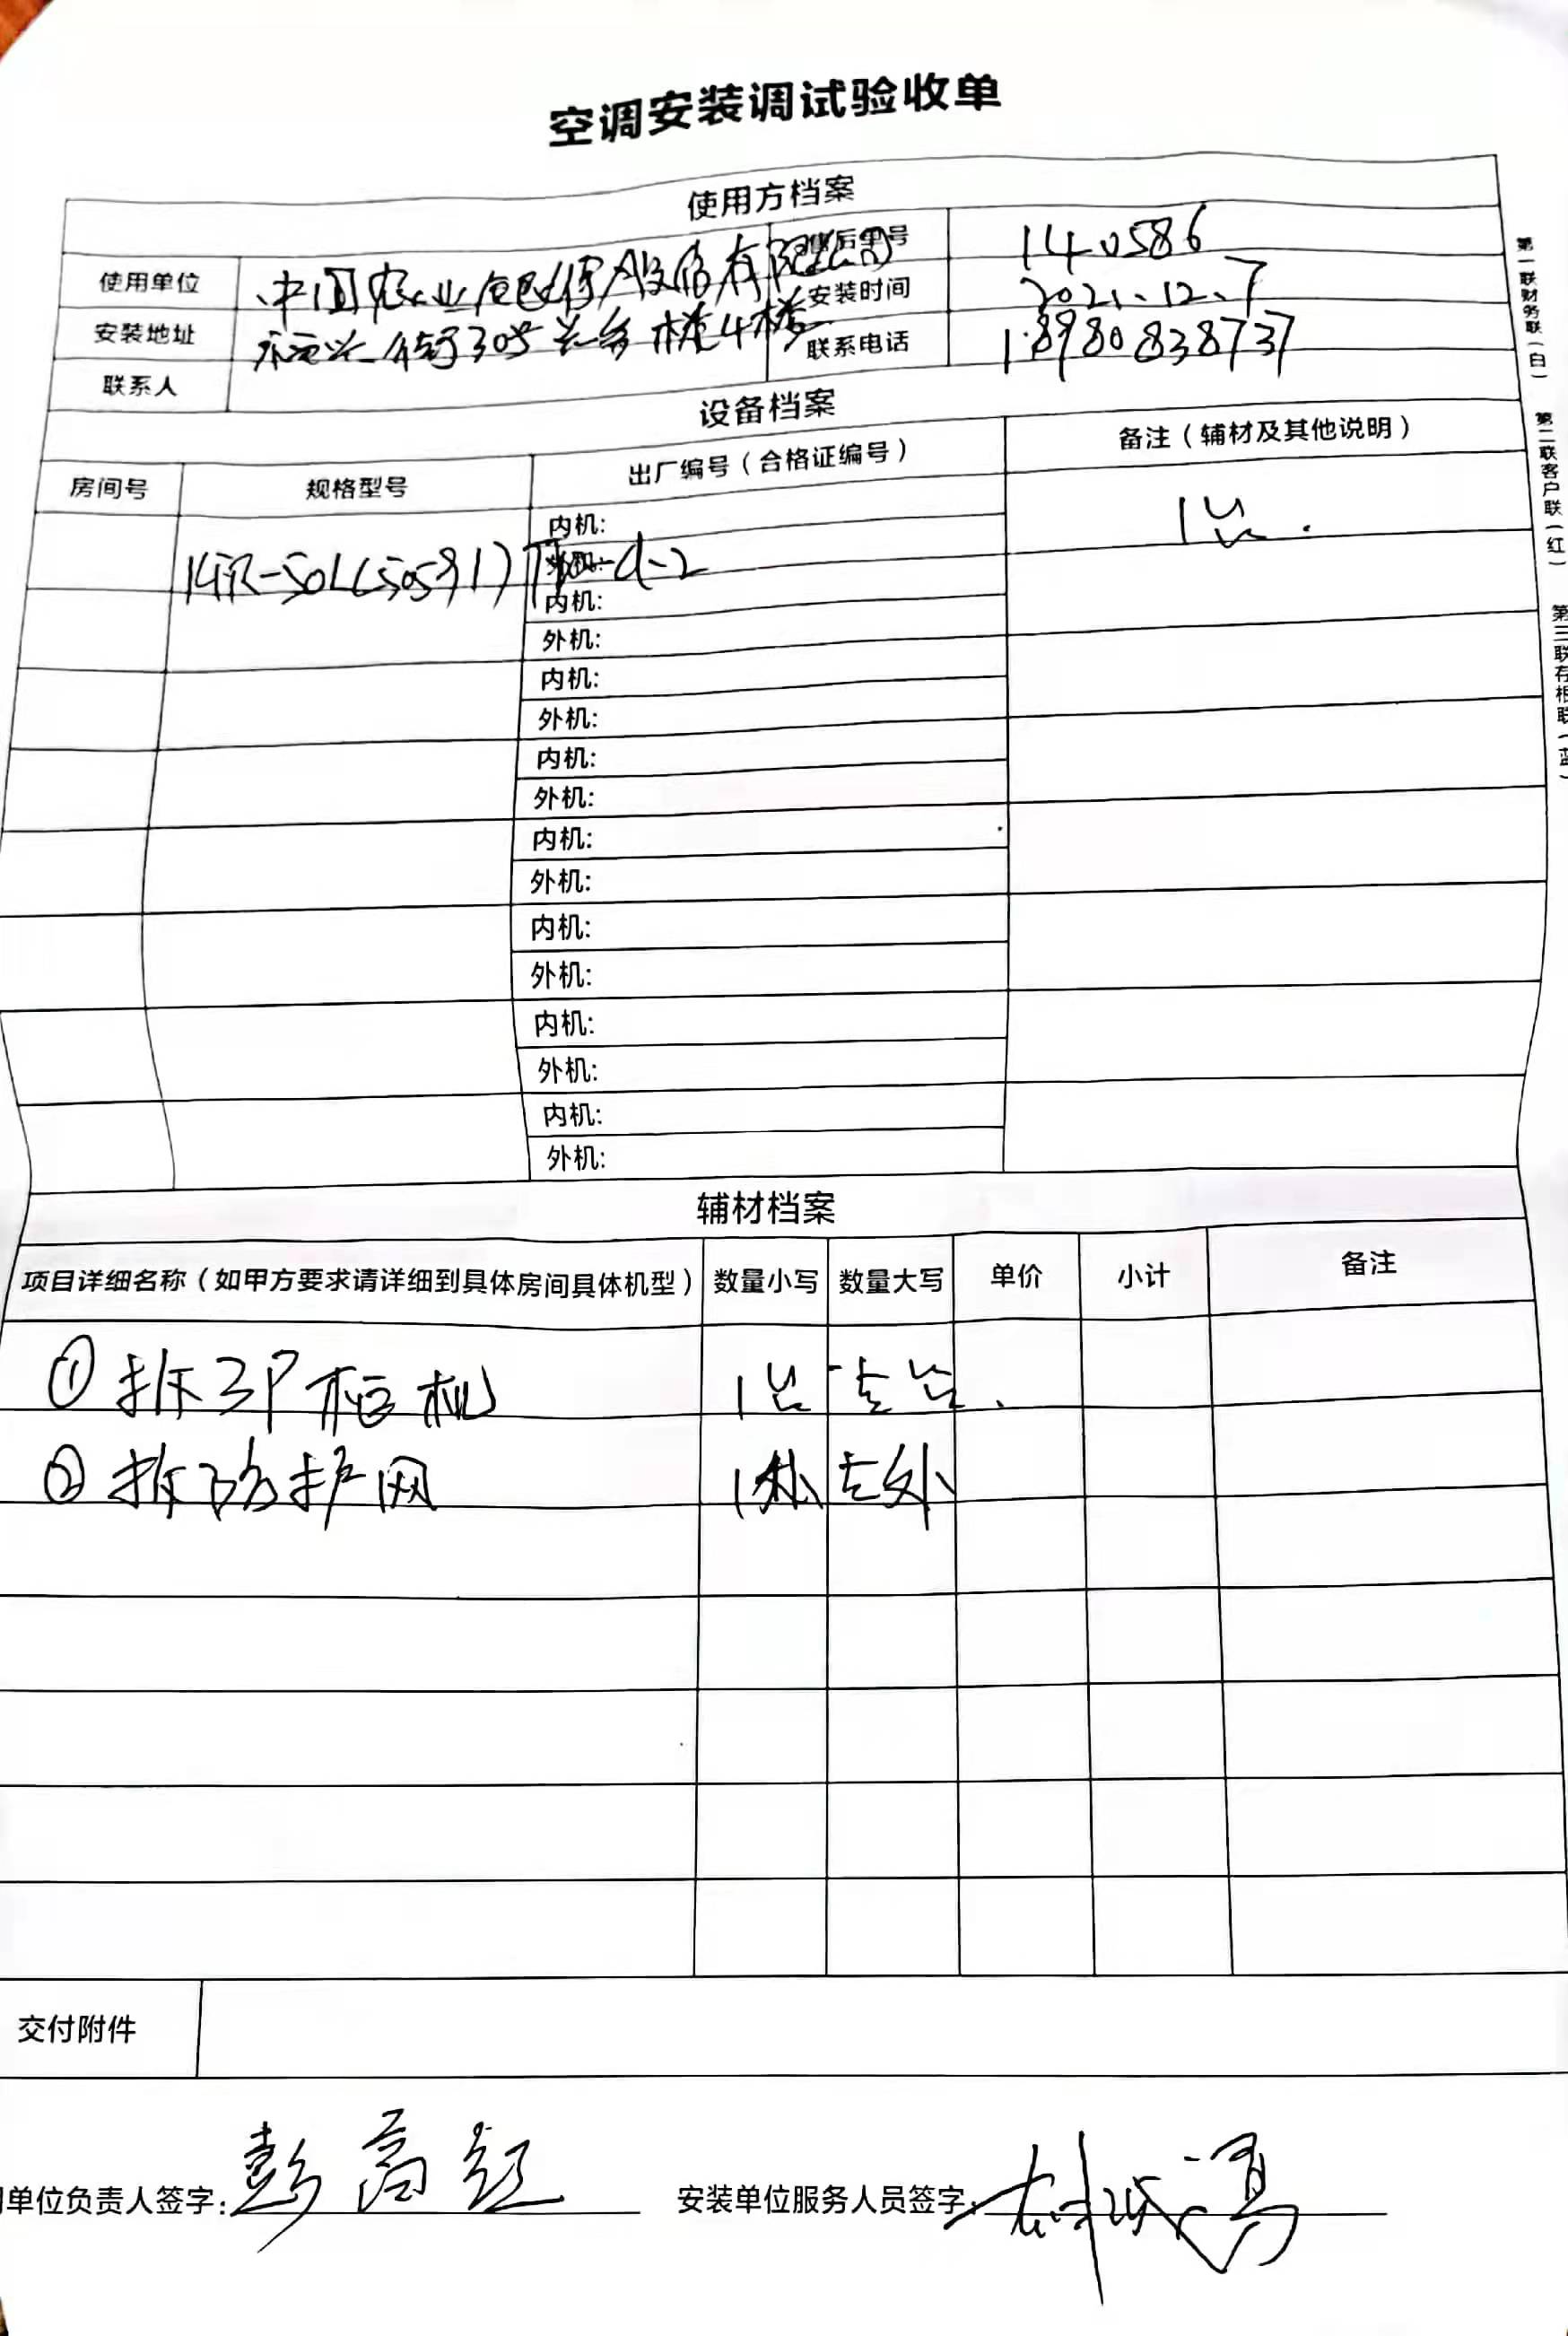 空调安装调试验收单
使用方档案
使用单位 中国农业 股份有限公司 售后单号 140586
安装地址 永兴 30号 4楼 安装时间 2021.12.7
联系人 联系电话 18980838737
设备档案
房间号 规格型号 出厂编号（合格证编号） 备注（辅材及其他说明）
内机: 1台.
KFR-50L(50591) -d-2 外机:
内机:
外机:
内机:
外机:
内机:
外机:
内机:
外机:
内机:
外机:
内机:
外机:
内机:
外机:
辅材档案
项目详细名称（如甲方要求请详细到具体房间具体机型） 数量小写 数量大写 单价 小计 备注
① 拆3P柜机 1台 壹台.
② 拆防护网 1处 壹处
交付附件
单位负责人签字: 彭高 安装单位服务人员签字:
第一联财务联（白）
第二联客户联（红）
第三联存根联（蓝）